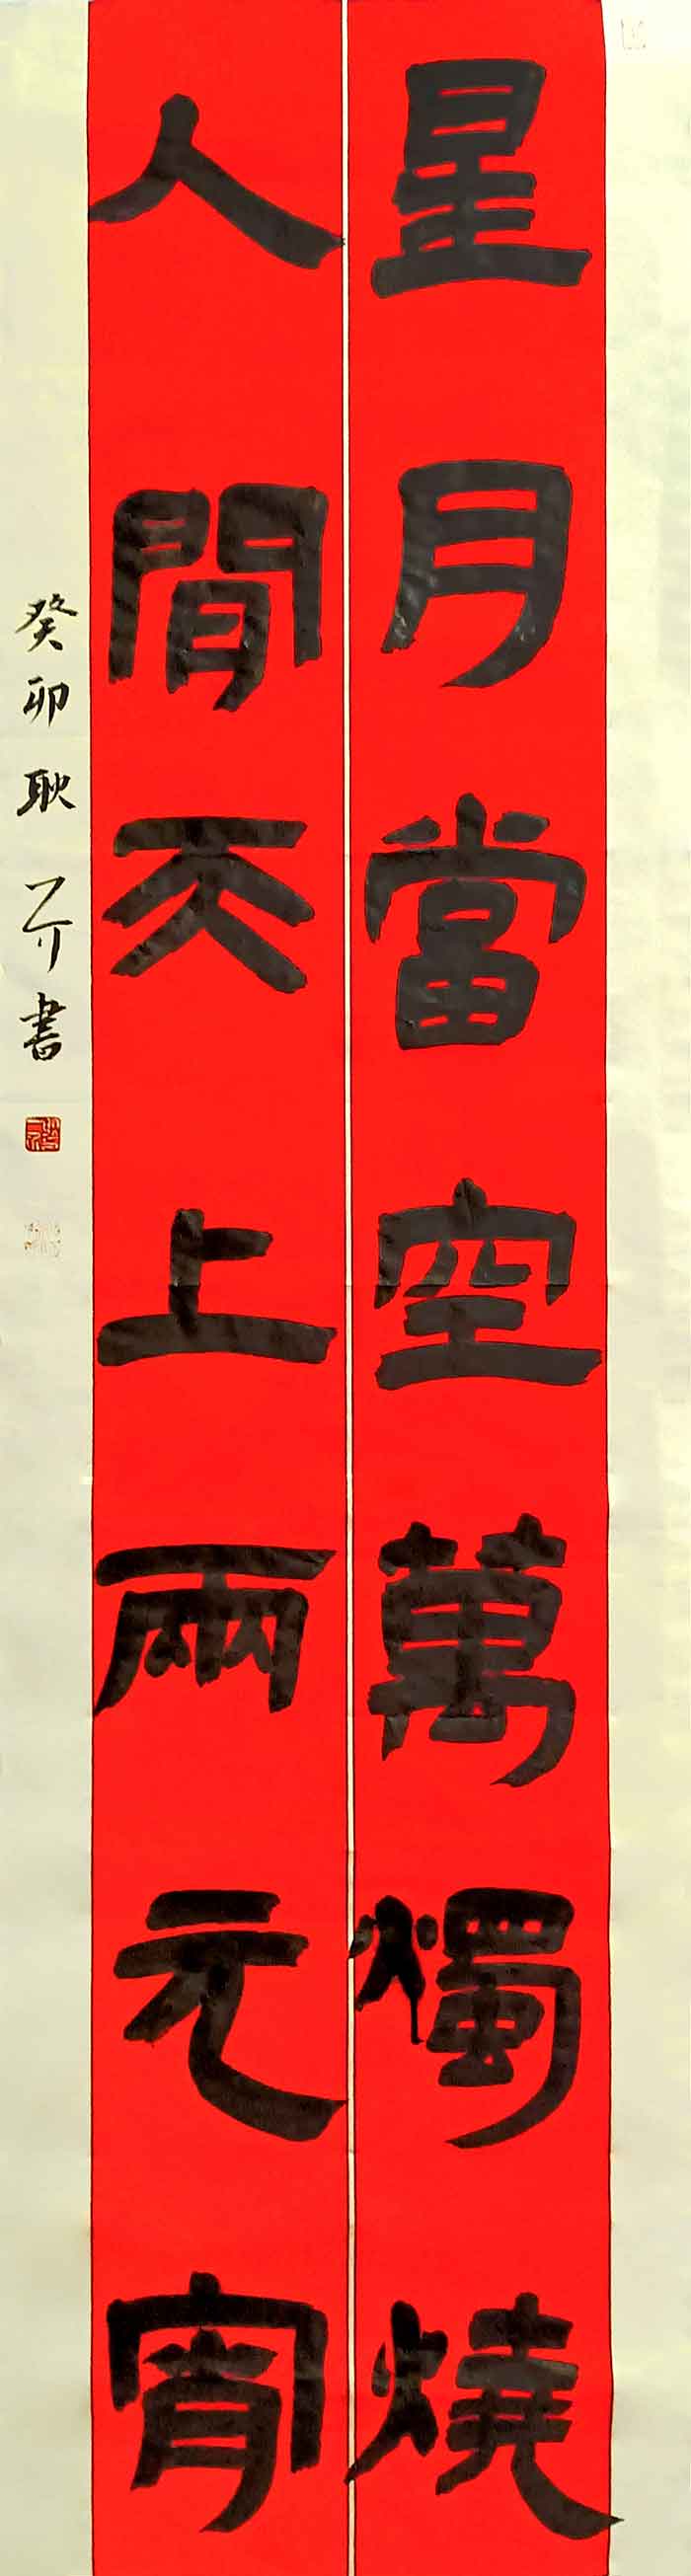 星月當空萬燭燒
人間天上兩元宵
癸卯耿介書